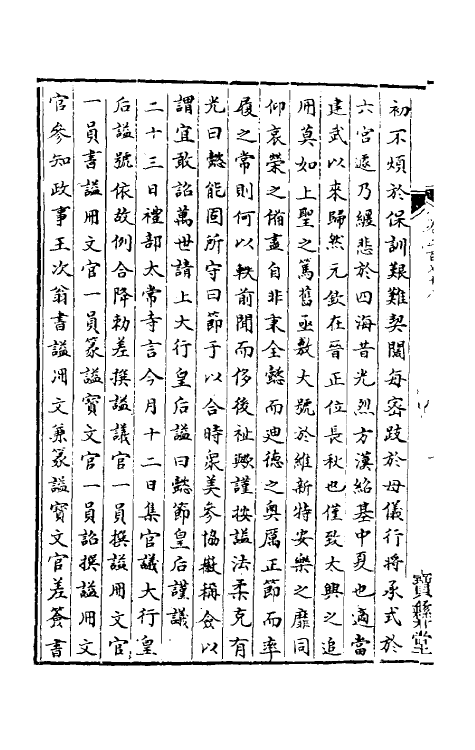 初不煩於保訓艱難契闊每容跂於母儀行將承式於
六宮遽乃緩悲於四海昔光烈方漢紹基中夏也適當
建武以來歸然元欽在晉正位長秋也僅致太興之追
用莫如上聖之篤舊亟敷大號於維新特安樂之靡同
仰哀榮之備盡自非秉全懿而迪德之奧厲正節而率
履之常則何以軼前聞而侈後祉歟謹按諡法柔克有
光曰懿能固所守曰節于以合時衆美參協徽稱僉以
謂宜敢詔萬世請上大行皇后諡曰懿節皇后謹議
二十三日禮部太常寺言今月十二日集官議大行皇
后諡號依故例合降勅差撰諡議官一員撰諡冊文官
一員書諡冊文官一員篆諡寶文官一員詔撰諡冊文
官參知政事王次翁書諡冊文兼篆諡寶文官差簽書